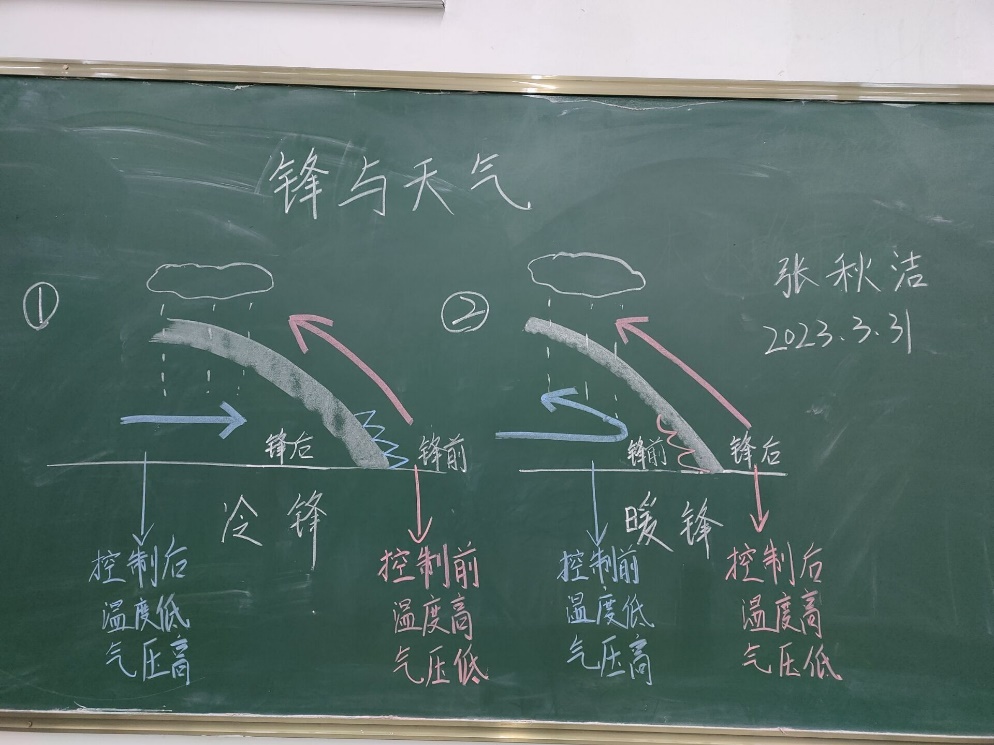 锋与天气
张秋洁
2023.3.31
①
锋后
锋前
冷锋
控制后
温度低
气压高
控制前
温度高
气压低
②
锋前
锋后
暖锋
控制前
温度低
气压高
控制后
温度高
气压低